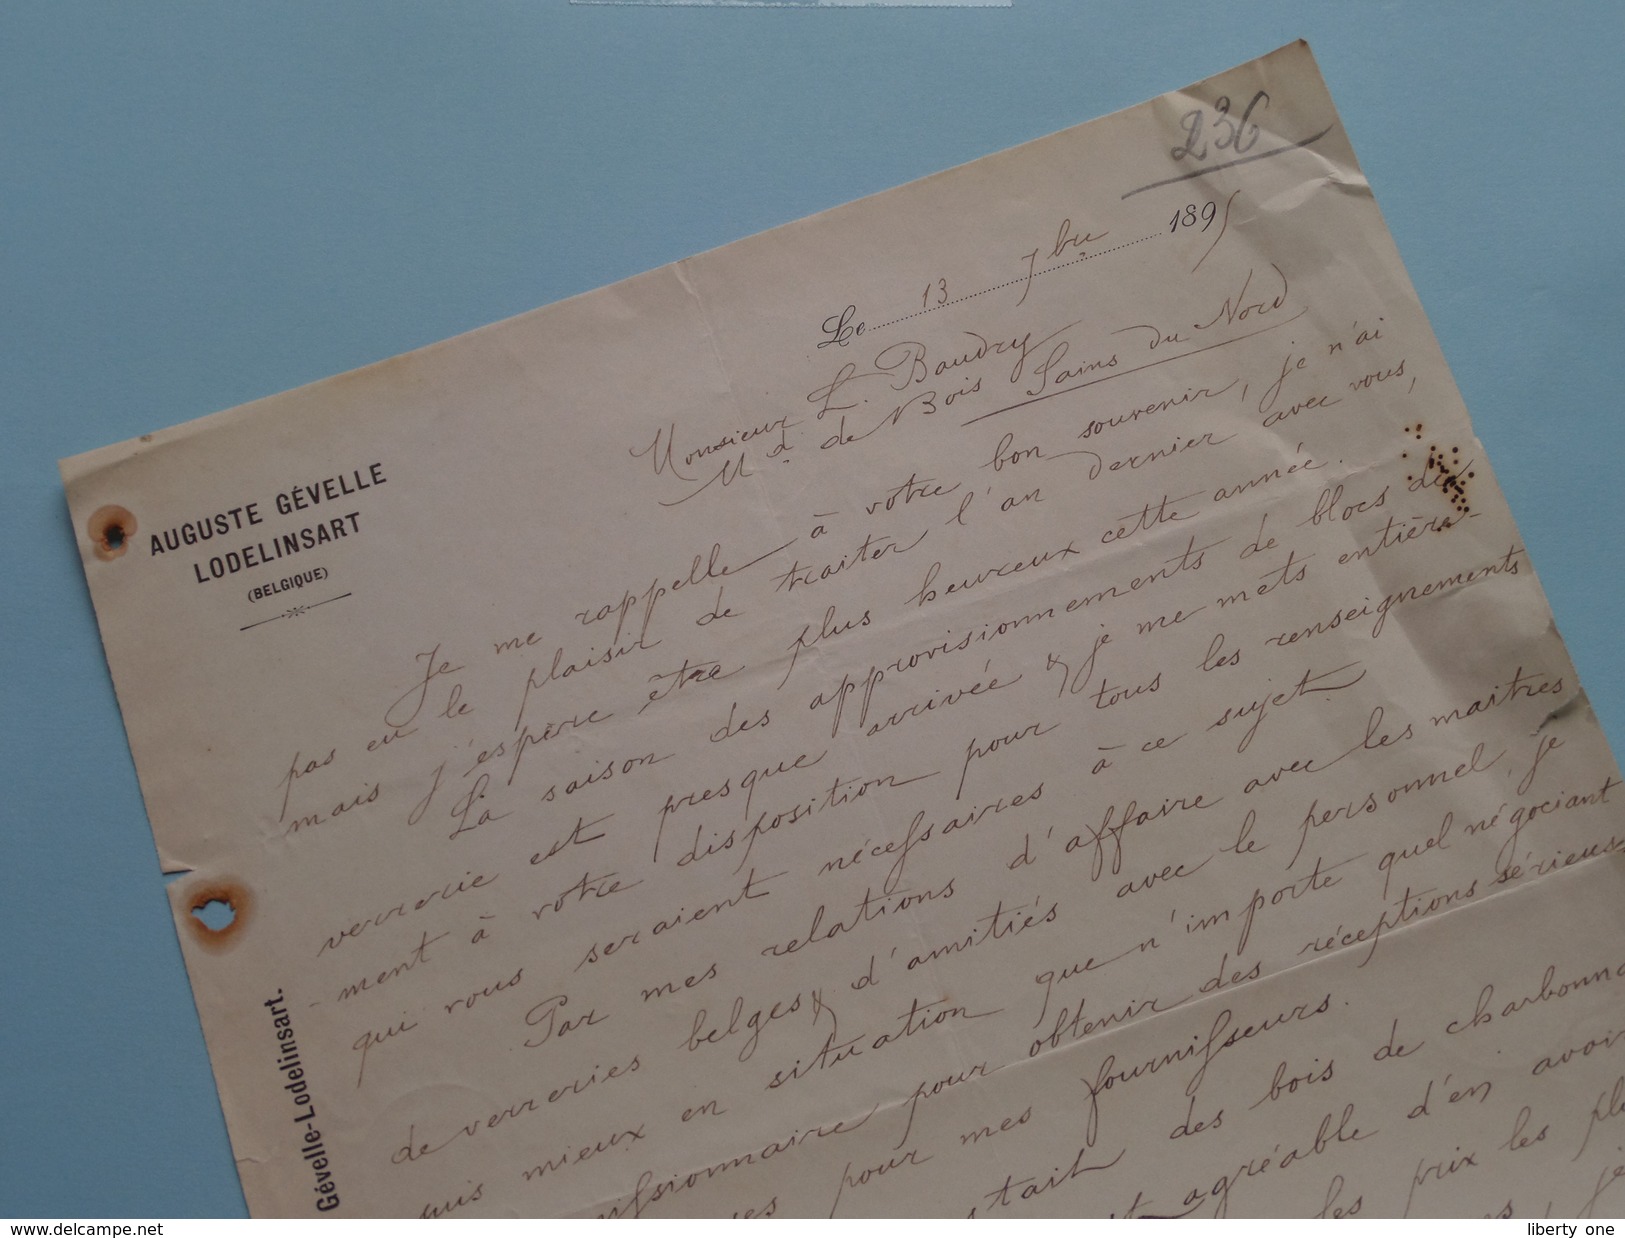 236
Le 13 7bre 1895
Monsieur L. Baudry
Md. de Bois Sains du Nord
AUGUSTE GÉVELLE
LODELINSART
(BELGIQUE)
Je me rappelle à votre bon souvenir, je n'ai
pas eu le plaisir de traiter l'an dernier avec vous,
mais j'espère être plus heureux cette année.
La saison des approvisionnements de blocs de
verrerie est presque arrivée & je me mets entière-
-ment à votre disposition pour tous les renseignements
qui vous seraient nécessaires à ce sujet.
Par mes relations d'affaire avec les maitres
de verreries belges & d'amitiés avec le personnel, je
suis mieux en situation que n'importe quel négociant
missionnaire pour obtenir des réceptions sérieus
ses pour mes fournisseurs.
stait des bois de charbonna
agréable d'en avoir
les prix les plu
je
Gévelle-Lodelinsart.
www.delcampe.net
liberty one